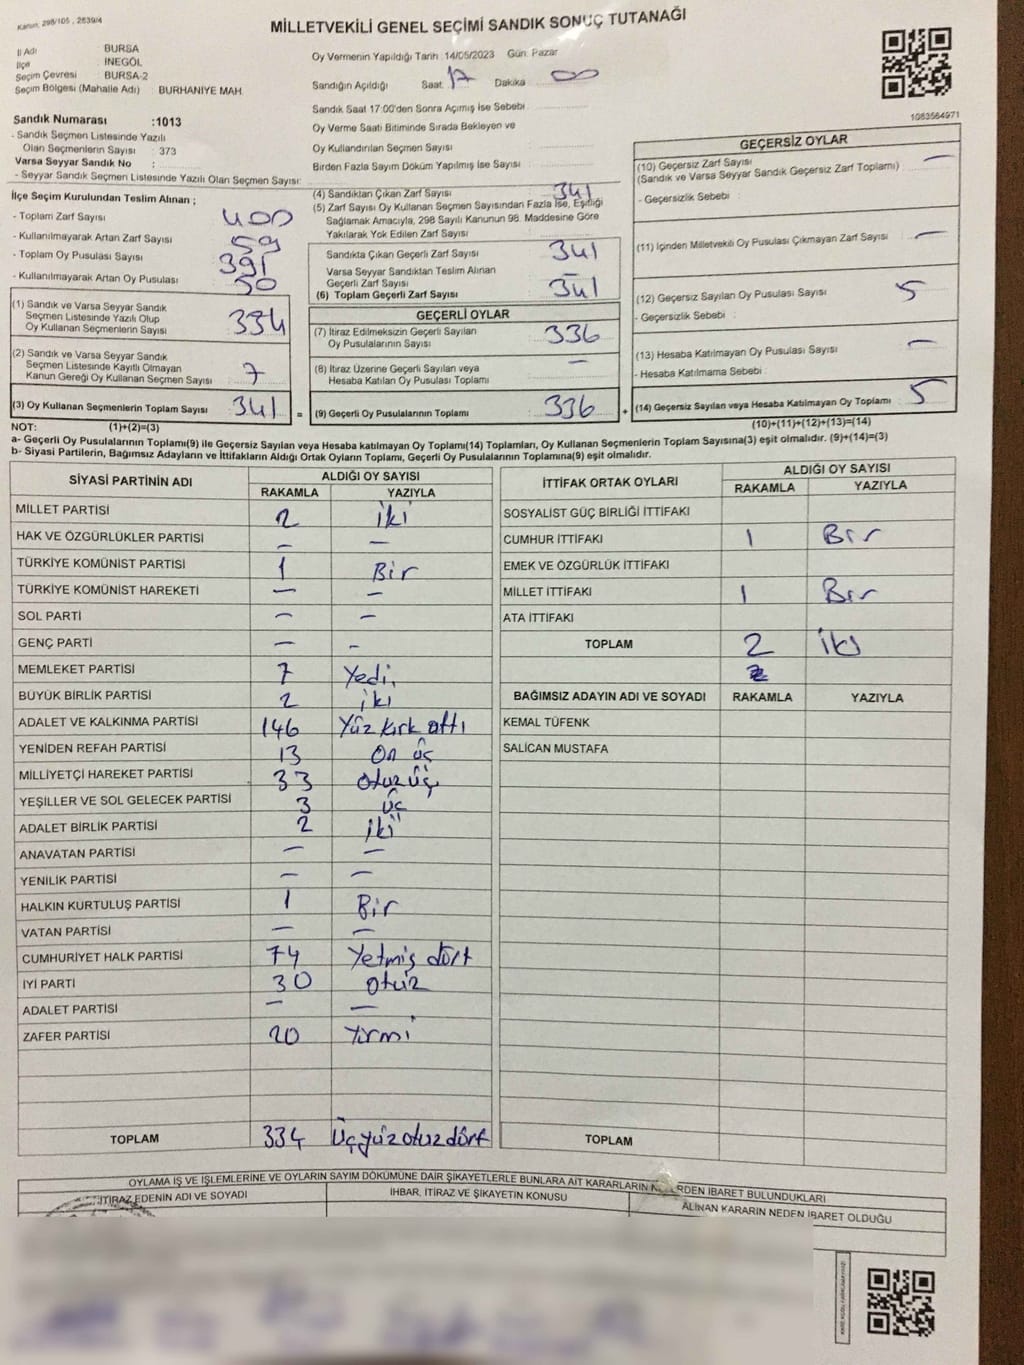 Kanun: 298/105 , 2839/4
MİLLETVEKİLİ GENEL SEÇİMİ SANDIK SONUÇ TUTANAĞI
İl Adı : BURSA
İlçe : İNEGÖL
Seçim Çevresi : BURSA-2
Seçim Bölgesi (Mahalle Adı) : BURHANİYE MAH.
Oy Vermenin Yapıldığı Tarih :14/05/2023 Gün: Pazar
Sandığın Açıldığı Saat: 17 Dakika : 00
Sandık Saat 17:00'den Sonra Açımış İse Sebebi :
Oy Verme Saati Bitiminde Sırada Bekleyen ve
Oy Kullandırılan Seçmen Sayısı :
Birden Fazla Sayım Döküm Yapılmış İse Sayısı :
1083564971
Sandık Numarası :1013
- Sandık Seçmen Listesinde Yazılı
Olan Seçmenlerin Sayısı : 373
Varsa Seyyar Sandık No :
- Seyyar Sandık Seçmen Listesinde Yazılı Olan Seçmen Sayısı:
İlçe Seçim Kurulundan Teslim Alınan ;
- Toplam Zarf Sayısı : 400
- Kullanılmayarak Artan Zarf Sayısı : 59
- Toplam Oy Pusulası Sayısı : 391
- Kullanılmayarak Artan Oy Pusulası : 50
(1) Sandık ve Varsa Seyyar Sandık
Seçmen Listesinde Yazılı Olup
Oy Kullanan Seçmenlerin Sayısı : 334
(2) Sandık ve Varsa Seyyar Sandık
Seçmen Listesinde Kayıtlı Olmayan
Kanun Gereği Oy Kullanan Seçmen Sayısı : 7
(3) Oy Kullanan Seçmenlerin Toplam Sayısı : 341 =
(4) Sandıktan Çıkan Zarf Sayısı : 341
(5) Zarf Sayısı Oy Kullanan Seçmen Sayısından Fazla İse, Eşitliği
Sağlamak Amacıyla, 298 Sayılı Kanunun 98. Maddesine Göre
Yakılarak Yok Edilen Zarf Sayısı :
Sandıkta Çıkan Geçerli Zarf Sayısı : 341
Varsa Seyyar Sandıktan Teslim Alınan
Geçerli Zarf Sayısı : –
(6) Toplam Geçerli Zarf Sayısı : 341
GEÇERLİ OYLAR
(7) İtiraz Edilmeksizin Geçerli Sayılan
Oy Pusulalarının Sayısı : 336
(8) İtiraz Üzerine Geçerli Sayılan veya
Hesaba Katılan Oy Pusulası Toplamı : –
(9) Geçerli Oy Pusulalarının Toplamı : 336 +
GEÇERSİZ OYLAR
(10) Geçersiz Zarf Sayısı : –
(Sandık ve Varsa Seyyar Sandık Geçersiz Zarf Toplamı)
- Geçersizlik Sebebi :
(11) İçinden Milletvekili Oy Pusulası Çıkmayan Zarf Sayısı : –
(12) Geçersiz Sayılan Oy Pusulası Sayısı : 5
- Geçersizlik Sebebi :
(13) Hesaba Katılmayan Oy Pusulası Sayısı : –
- Hesaba Katılmama Sebebi :
(14) Geçersiz Sayılan veya Hesaba Katılmayan Oy Toplamı : 5
NOT: (1)+(2)=(3) (10)+(11)+(12)+(13)=(14)
a- Geçerli Oy Pusulalarının Toplamı(9) ile Geçersiz Sayılan veya Hesaba katılmayan Oy Toplamı(14) Toplamları, Oy Kullanan Seçmenlerin Toplam Sayısına(3) eşit olmalıdır. (9)+(14)=(3)
b- Siyasi Partilerin, Bağımsız Adayların ve İttifakların Aldığı Ortak Oyların Toplamı, Geçerli Oy Pusulalarının Toplamına(9) eşit olmalıdır.
SİYASİ PARTİNİN ADI ALDIĞI OY SAYISI
RAKAMLA YAZIYLA
MİLLET PARTİSİ 2 iki
HAK VE ÖZGÜRLÜKLER PARTİSİ – –
TÜRKİYE KOMÜNİST PARTİSİ 1 Bir
TÜRKİYE KOMÜNİST HAREKETİ – –
SOL PARTİ – –
GENÇ PARTİ – –
MEMLEKET PARTİSİ 7 Yedi
BÜYÜK BİRLİK PARTİSİ 2 iki
ADALET VE KALKINMA PARTİSİ 146 Yüz kırk altı
YENİDEN REFAH PARTİSİ 13 On üç
MİLLİYETÇİ HAREKET PARTİSİ 33 otuz üç
YEŞİLLER VE SOL GELECEK PARTİSİ 3 üç
ADALET BİRLİK PARTİSİ 2 iki
ANAVATAN PARTİSİ – –
YENİLİK PARTİSİ – –
HALKIN KURTULUŞ PARTİSİ 1 Bir
VATAN PARTİSİ – –
CUMHURİYET HALK PARTİSİ 74 Yetmiş dört
İYİ PARTİ 30 otuz
ADALET PARTİSİ – –
ZAFER PARTİSİ 20 Yirmi
TOPLAM 334 Üçyüzotuzdört
İTTİFAK ORTAK OYLARI ALDIĞI OY SAYISI
RAKAMLA YAZIYLA
SOSYALİST GÜÇ BİRLİĞİ İTTİFAKI
CUMHUR İTTİFAKI 1 Bir
EMEK VE ÖZGÜRLÜK İTTİFAKI
MİLLET İTTİFAKI 1 Bir
ATA İTTİFAKI
TOPLAM 2 iki
2
BAĞIMSIZ ADAYIN ADI VE SOYADI RAKAMLA YAZIYLA
KEMAL TÜFENK
SALİCAN MUSTAFA
TOPLAM
OYLAMA İŞ VE İŞLEMLERİNE VE OYLARIN SAYIM DÖKÜMÜNE DAİR ŞİKAYETLERLE BUNLARA AİT KARARLARIN NELERDEN İBARET BULUNDUKLARI
İTİRAZ EDENİN ADI VE SOYADI İHBAR, İTİRAZ VE ŞİKAYETİN KONUSU ALINAN KARARIN NEDEN İBARET OLDUĞU